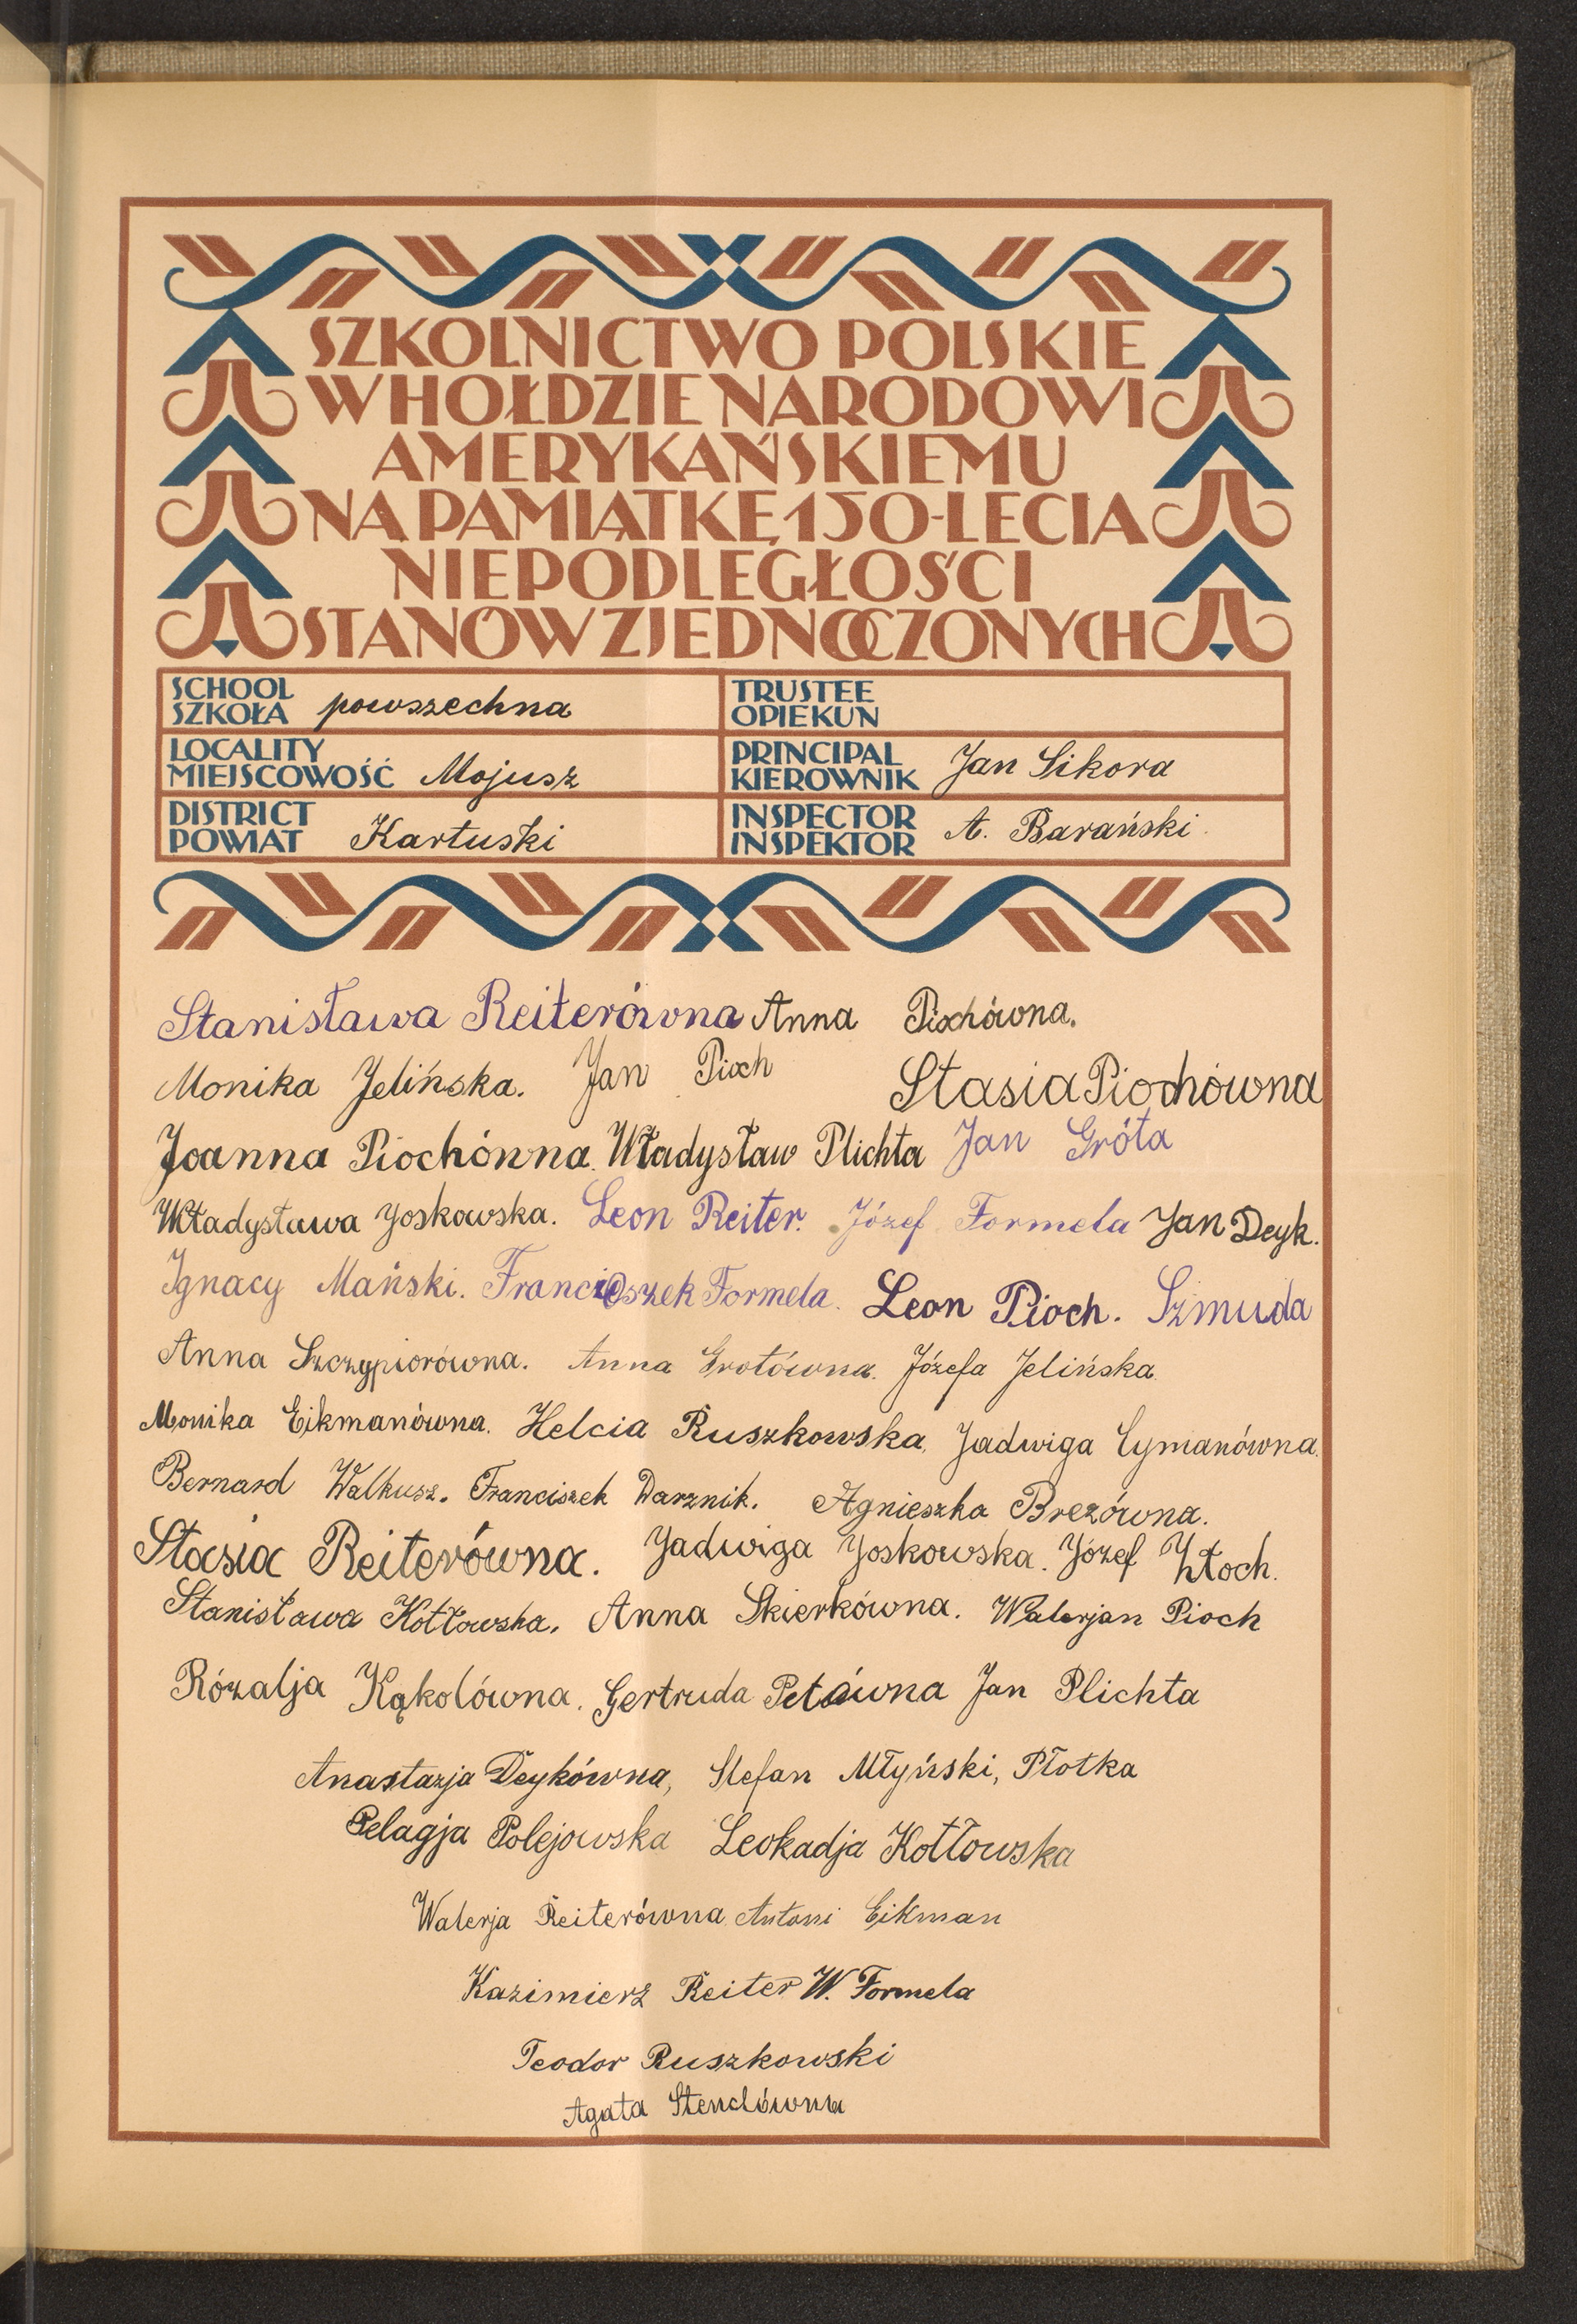 SZKOLNICTWO POLSKIE
W HOŁDZIE NARODOWI
AMERYKAŃSKIEMU
NA PAMIĄTKĘ 150-LECIA
NIEPODLEGŁOŚCI
STANÓW ZJEDNOCZONYCH
SCHOOL
SZKOŁA powszechna
TRUSTEE
OPIEKUN
LOCALITY
MIEJSCOWOŚĆ Mojusz
PRINCIPAL
KIEROWNIK Jan Sikora
DISTRICT
POWIAT Kartuski
INSPECTOR
INSPEKTOR A. Barański.
Stanisława Reiterówna Anna Piochówna.
Monika Jelińska. Jan Pioch Stasia Piochówna
Joanna Piochówna. Władysław Plichta Jan Gróta
Władysława Joskowska. Leon Reiter. Józef Formela Jan Deyk.
Ignacy Mański. Franciszek Formela. Leon Pioch. Szmuda
Anna Szczypiorówna. Anna Grotówna. Józefa Jelińska.
Monika Eikmanówna. Helcia Ruszkowska. Jadwiga Cymanówna.
Bernard Walkusz. Franciszek Darznik. Agnieszka Brezówna.
Stasia Reiterówna. Jadwiga Joskowska. Józef Złoch.
Stanisława Kotłowska. Anna Skierkówna. Walerjan Pioch
Rózalja Kąkolówna. Gertruda Petówna Jan Plichta
Anastazja Deykówna, Stefan Młyński, Płotka
Pelagja Polejowska Leokadja Kotłowska
Walerja Reiterówna. Antoni Eikman
Kazimierz Reiter W. Formela
Teodor Ruszkowski
Agata Stenclówna